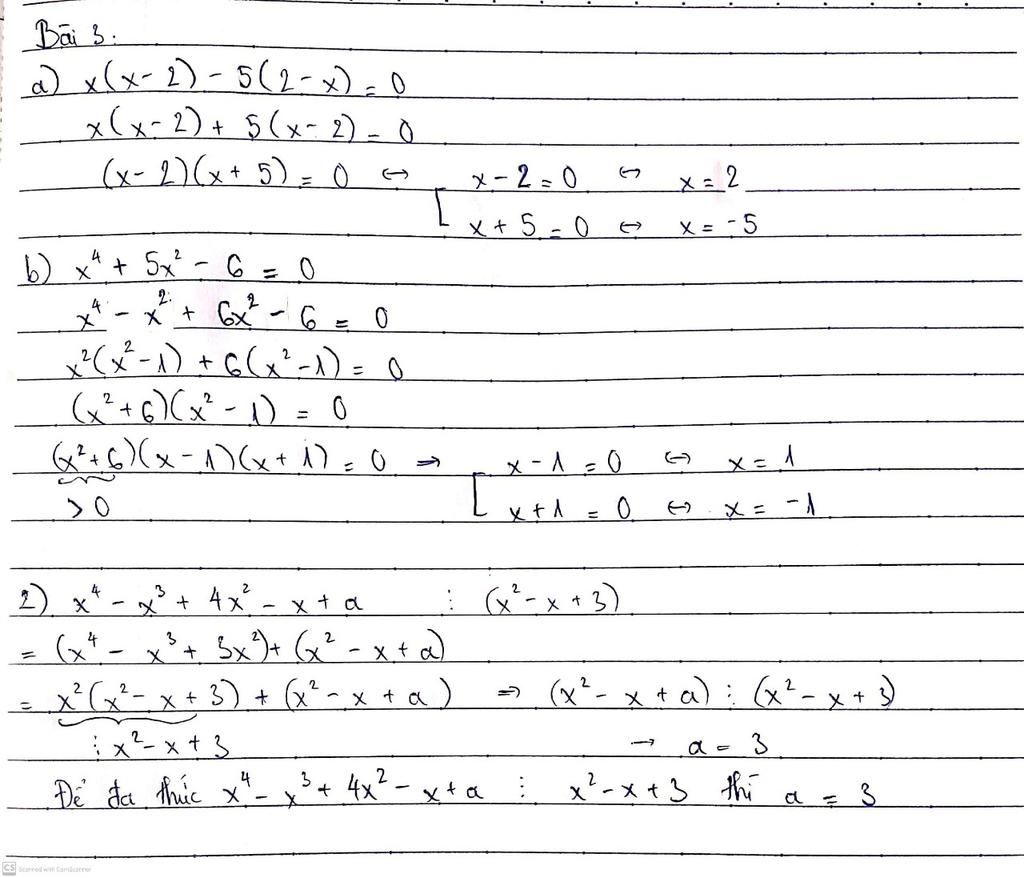 Bài 3:
a) x(x - 2) - 5(2 - x) = 0
x(x - 2) + 5(x - 2) = 0
(x - 2)(x + 5) = 0 ↔ [ x - 2 = 0 ↔ x = 2
x + 5 = 0 ↔ x = -5
b) x⁴ + 5x² - 6 = 0
x⁴ - x² + 6x² - 6 = 0
x²(x² - 1) + 6(x² - 1) = 0
(x² + 6)(x² - 1) = 0
(x² + 6)(x - 1)(x + 1) = 0 ⇒ [ x - 1 = 0 ↔ x = 1
> 0 x + 1 = 0 ↔ x = -1
2) x⁴ - x³ + 4x² - x + a ⋮ (x² - x + 3)
= (x⁴ - x³ + 3x²) + (x² - x + a)
= x²(x² - x + 3) + (x² - x + a) ⇒ (x² - x + a) ⋮ (x² - x + 3)
⋮ x² - x + 3 → a = 3
Để đa thức x⁴ - x³ + 4x² - x + a ⋮ x² - x + 3 thì a = 3
CS Scanned with CamScanner